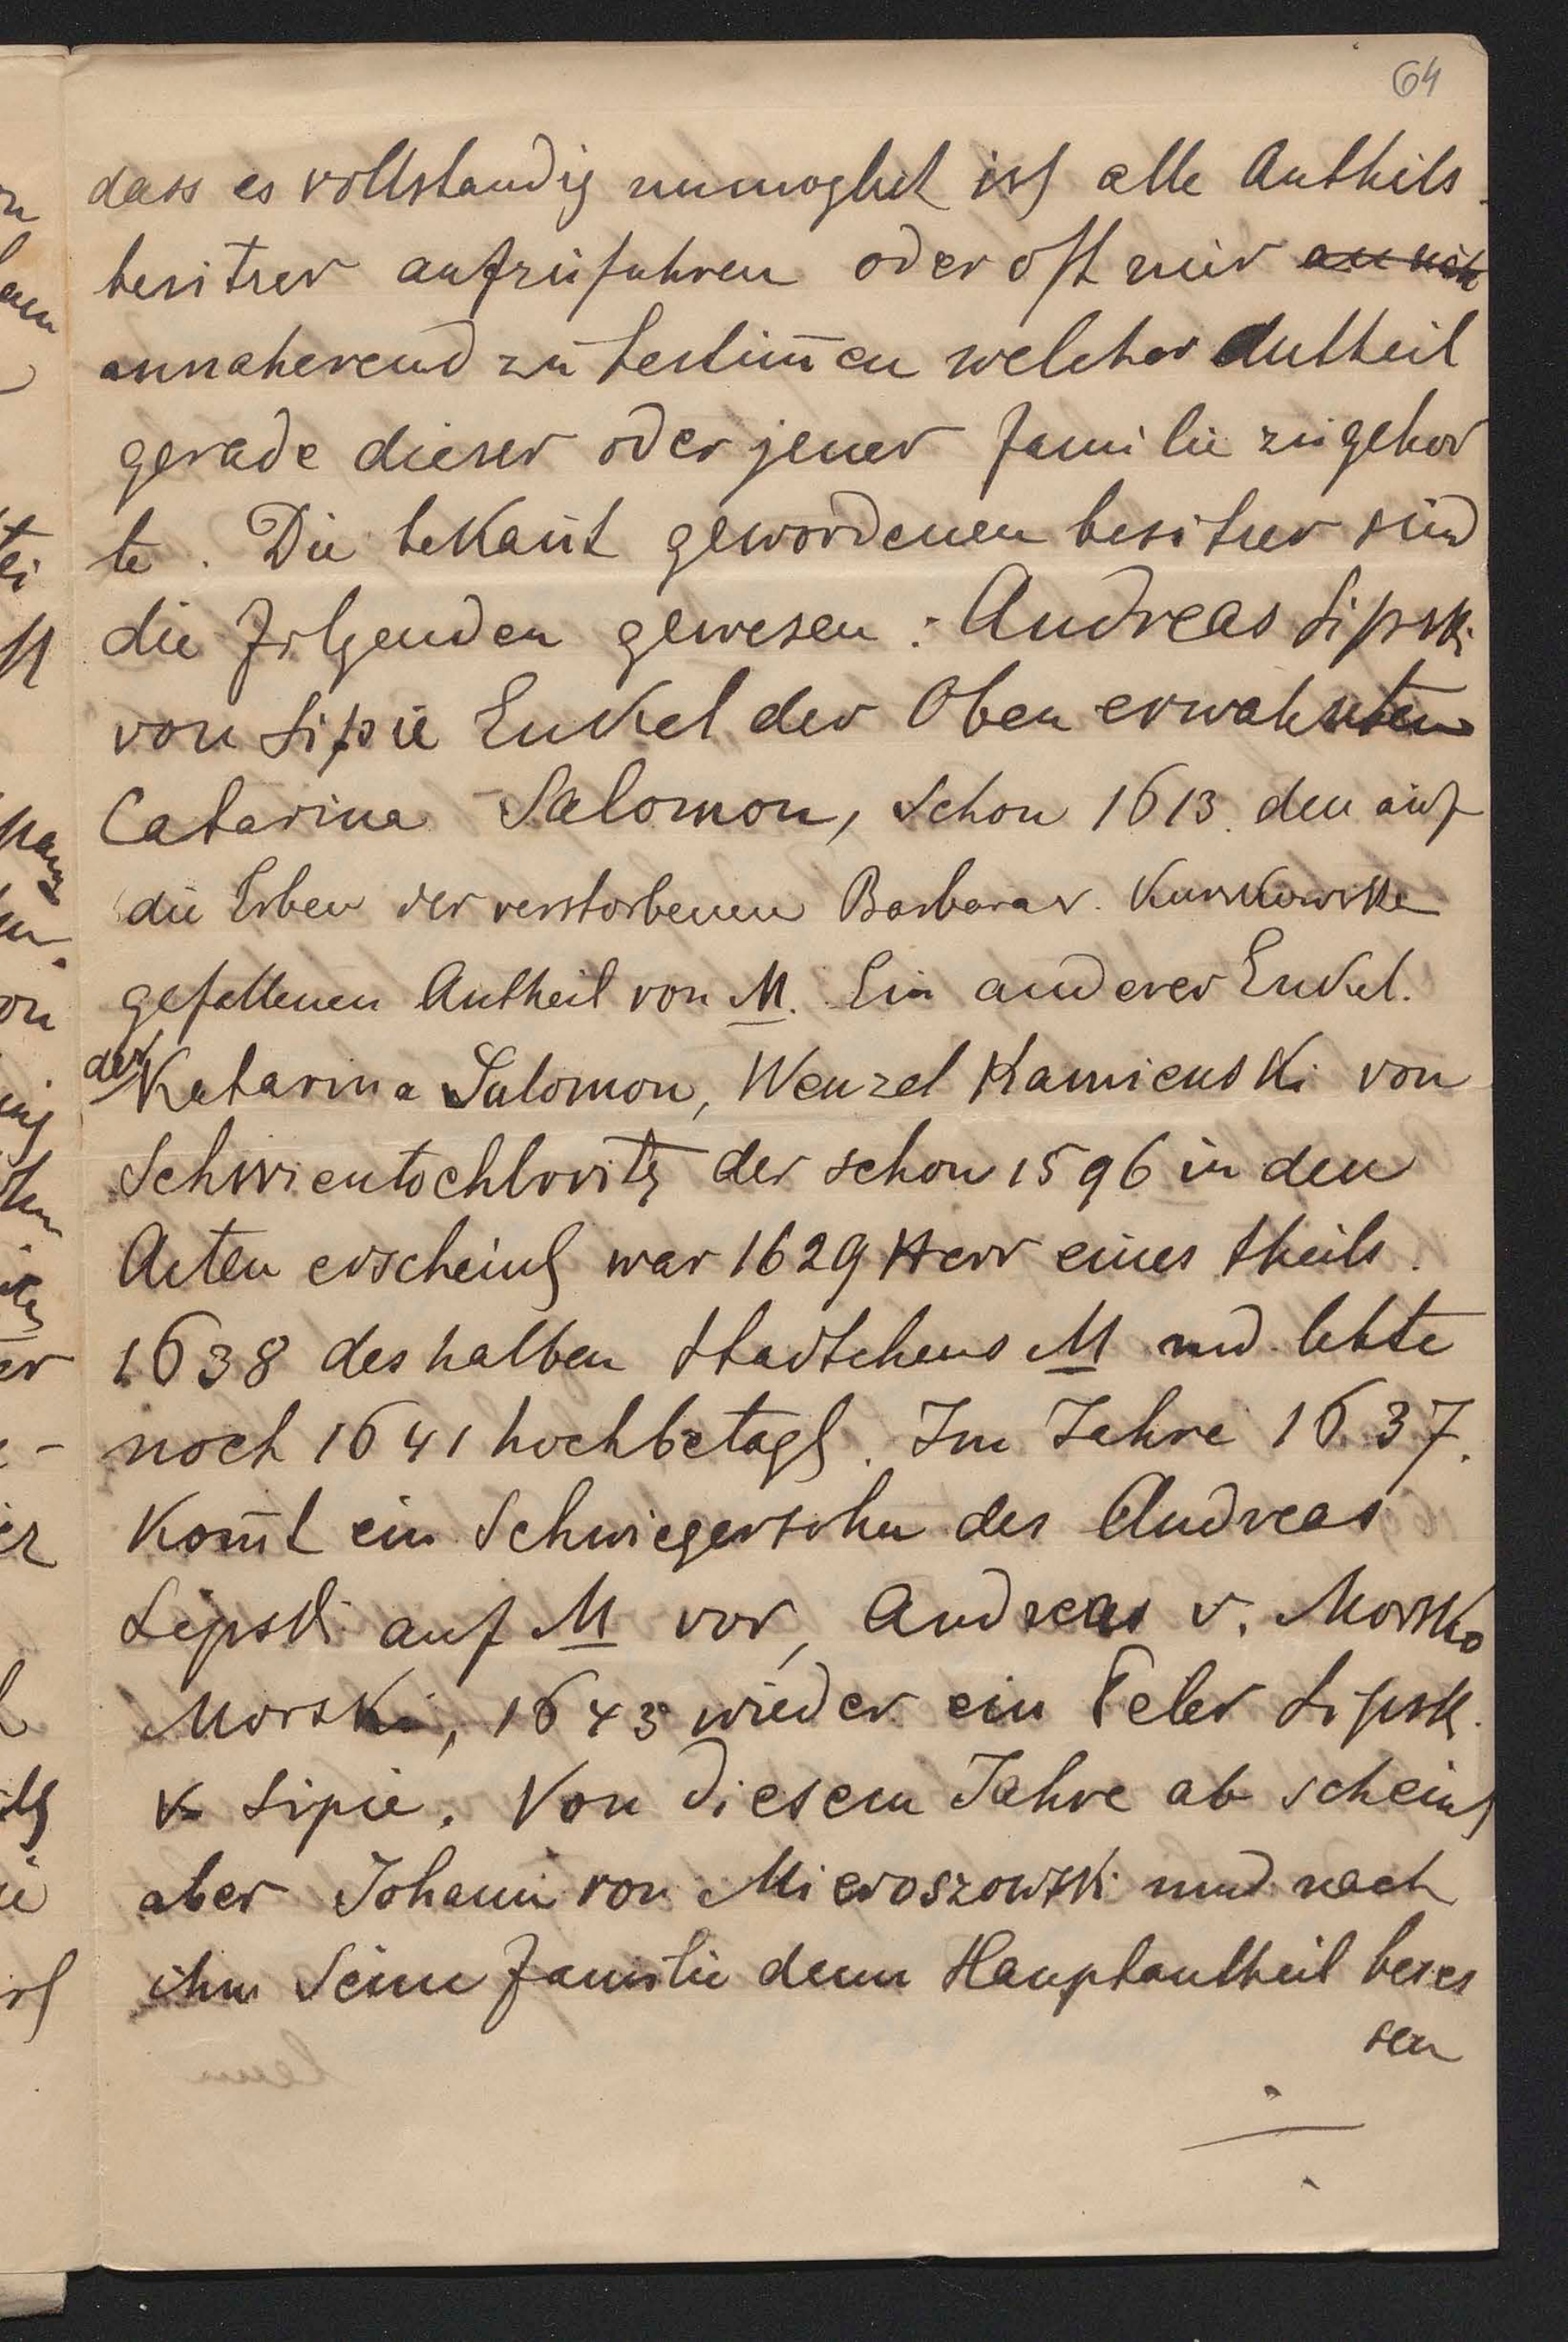 64
dass es vollstandig unmoglich ist alle Antheils
besitzer aufzufuhren oder oft nur
annaherend zu bestim̄en welcher Antheil
gerade dieser oder jener Familie zugehor
te. Die bekan̄t gewordenen besitzer sind
die Folgenden gewesen: Andreas Lipski
von Lipie Enkel der Oben erwahnten
Catarina Salomon, schon 1613. den auf
die Erben der verstorbenen Barbara v.
gefallenen Antheil von M. Ein anderer Enkel.
der Katarina Salomon, Wenzel Kamienski von
Schwientochlovitz der schon 1596 in den
Acten erscheint war 1629 Herr eines theils.
1638 des halben Stadtchens M und lebte
noch 1641 hochbetagt. Im Jahre 1637.
Kom̄t ein Schwiegersohn des Andreas
Lipski auf M vor, Andreas v. Morsko
Morski, 1643 wieder ein Peter Lipsk.
v. Lipie. Von diesem Jahre ab scheint
aber Johann von Mieroszowski und nach
ihm Seine Familie denn Hauptantheil beses
sen